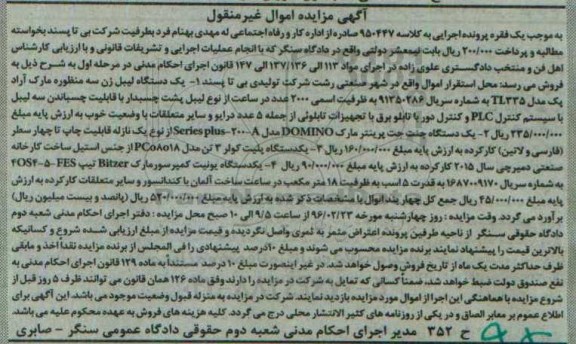 آگهی مزایده اموال غیرمنقول
به موجب یک فقره پرونده اجرایی به کلاسه ۹۵۰۴۴۷ صادره از اداره کار و رفاه اجتماعی له مهدی بهنام فرد بطرفیت شرکت بی تا پسند بخواسته
مطالبه و پرداخت ۲۰۰/۰۰۰ ریال بابت نیمعشر دولتی واقع در دادگاه سنگر که با انجام عملیات اجرایی و تشریفات قانونی و با ارزیابی کارشناس
اهل فن و منتخب دادگستری علوی زاده در اجرای مواد ۱۱۳ الی ۱۳۷/۱۳۶ الی ۱۴۷ قانون اجرای احکام مدنی در مرحله اول به شرح ذیل به
فروش می رسد: محل استقرار اموال واقع در شهر صنعتی رشت شرکت تولیدی بی تا پسند ۱- یک دستگاه لیبل زن سه منظوره مارک آراد
پک مدل TL۳۳۵ به شماره سریال ۹۱۳۵۰۲۸۶ به ظرفیت اسمی ۲۰۰۰ عدد در ساعت از نوع لیبل پشت چسبدار با قابلیت چسباندن سه لیبل
با سیستم کنترل PLC و کنترل دور با تابلو برق با تجهیزات تابلوئی از جمله ۵ عدد درایو و سایر متعلقات با وضعیت خوب به ارزش پایه مبلغ
۲۳۵/۰۰۰/۰۰۰ ریال ۲- یک دستگاه جنت جت پرینتر مارک DOMINO مدل Series plus-۲۰۰-A از نوع یک نازله قابلیت چاپ تا چهار سطر
(فارسی و لاتین) کارکرده به ارزش پایه مبلغ ۱۶۰/۰۰۰/۰۰۰ ریال ۳- یکدستگاه پلیت کولر ۳ تن مدل PC۵۸۰۱۸ از جنس استیل ساخت کارخانه
صنعتی دمیرچی سال ۲۰۱۵ کارکرده به ارزش پایه مبلغ ۹۰/۰۰۰/۰۰۰ ریال ۴- یکدستگاه یونیت کمپرسور مارک Bitzer تیپ ۴OS۴-۵-FES
به شماره سریال ۱۶۸۷۰۰۹۱۷۰ به قدرت ۵ اسب به ظرفیت ۱۸ متر مکعب در ساعت ساخت آلمان با کندانسور و سایر متعلقات کارکرده به ارزش
پایه مبلغ ۴۵/۰۰۰/۰۰۰ ریال جمع کل چهار بند اموال با مشخصات ذکر شده به ارزش پایه مبلغ ۵۳۰/۰۰۰/۰۰۰ ریال (پانصد و بیست میلیون ریال)
برآورد می گردد. وقت مزایده: روز چهارشنبه مورخه ۹۶/۰۲/۲۳ از ساعت ۹/۵ الی ۱۰ صبح محل مزایده: دفتر اجرای احکام مدنی شعبه دوم
دادگاه حقوقی سنگر از ناحیه طرفین پرونده اعتراض مثمر به ثمری واصل نگردیده و قیمت مزایده از مبلغ ارزیابی شده شروع و کسانیکه
بالاترین قیمت را پیشنهاد نمایند برنده مزایده محسوب می شوند و مبلغ ۱۰درصد پیشنهادی را فی المجلس از برنده مزایده نقداً اخذ و مابقی
ظرف حداکثر مدت یک ماه از تاریخ فروش وصول خواهد شد. در غیر اینصورت مبلغ ۱۰ درصد مستنداً به ماده ۱۲۹ قانون اجرای احکام مدنی به
نفع صندوق دولت ضبط خواهد شد. ضمناً کسانی که تمایل به شرکت در مزایده را دارند وفق ماده ۱۲۶ همان قانون می توانند ظرف ۵ روز قبل از
شروع مزایده با هماهنگی این اجرا از اموال مورد مزایده بازدید نمایند. شرکت در مزایده به منزله قبول وضعیت موجود می باشد. این آگهی برای
اطلاع عموم بر معابر الصاق و در یکی از روزنامه های کثیر الانتشار محلی درج می گردد. کلیه هزینه های فروش به عهده محکوم علیه می باشد.
خ ۳۵۲ مدیر اجرای احکام مدنی شعبه دوم حقوقی دادگاه عمومی سنگر - صابری